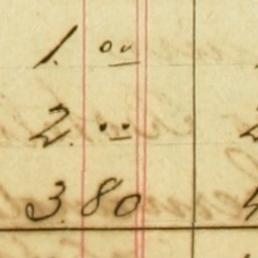 1. 00
2. 00
3.80